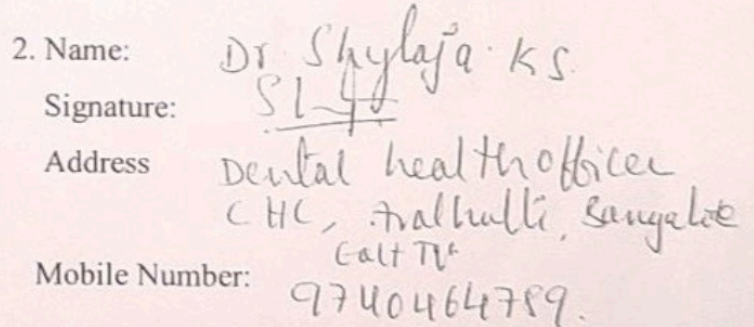 2. Name: Dr Shylaja. K S.
Signature:
Address Dental health officer
CHC, Avalhalli, Bangalore
East Tlk
Mobile Number: 9740464789.